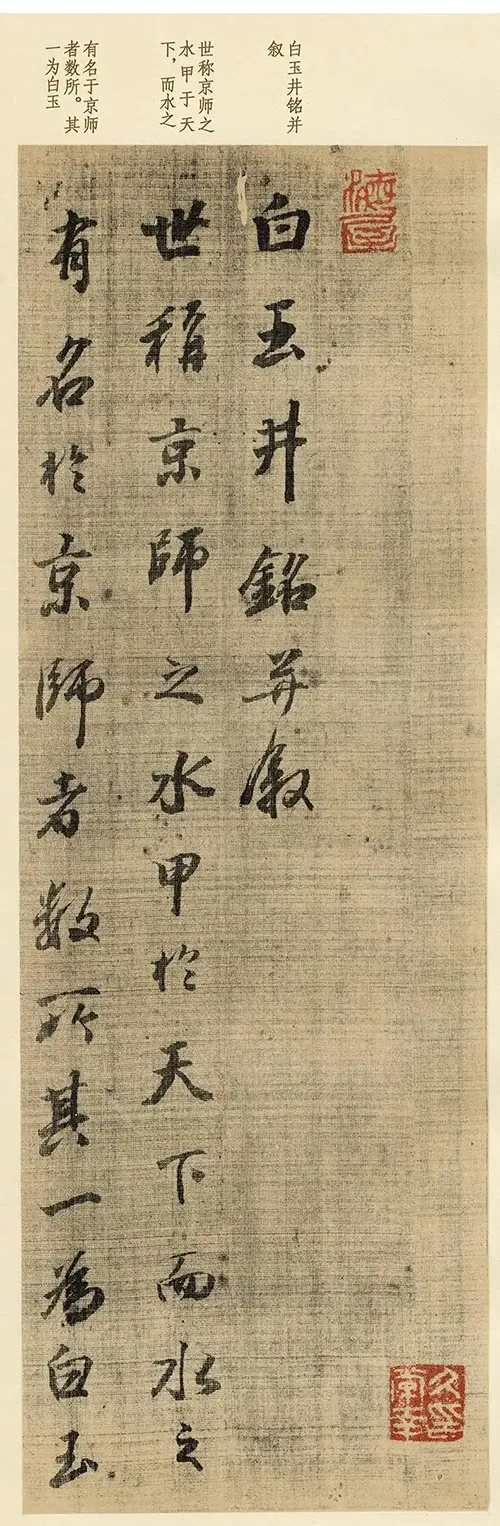 白玉井铭并
叙
世称京师之
水甲于天
下，而水之
有名于京师
者数所。其
一为白玉
白玉井銘并敘
世稱京師之水甲於天下而水之
有名於京師者數所其一為白玉